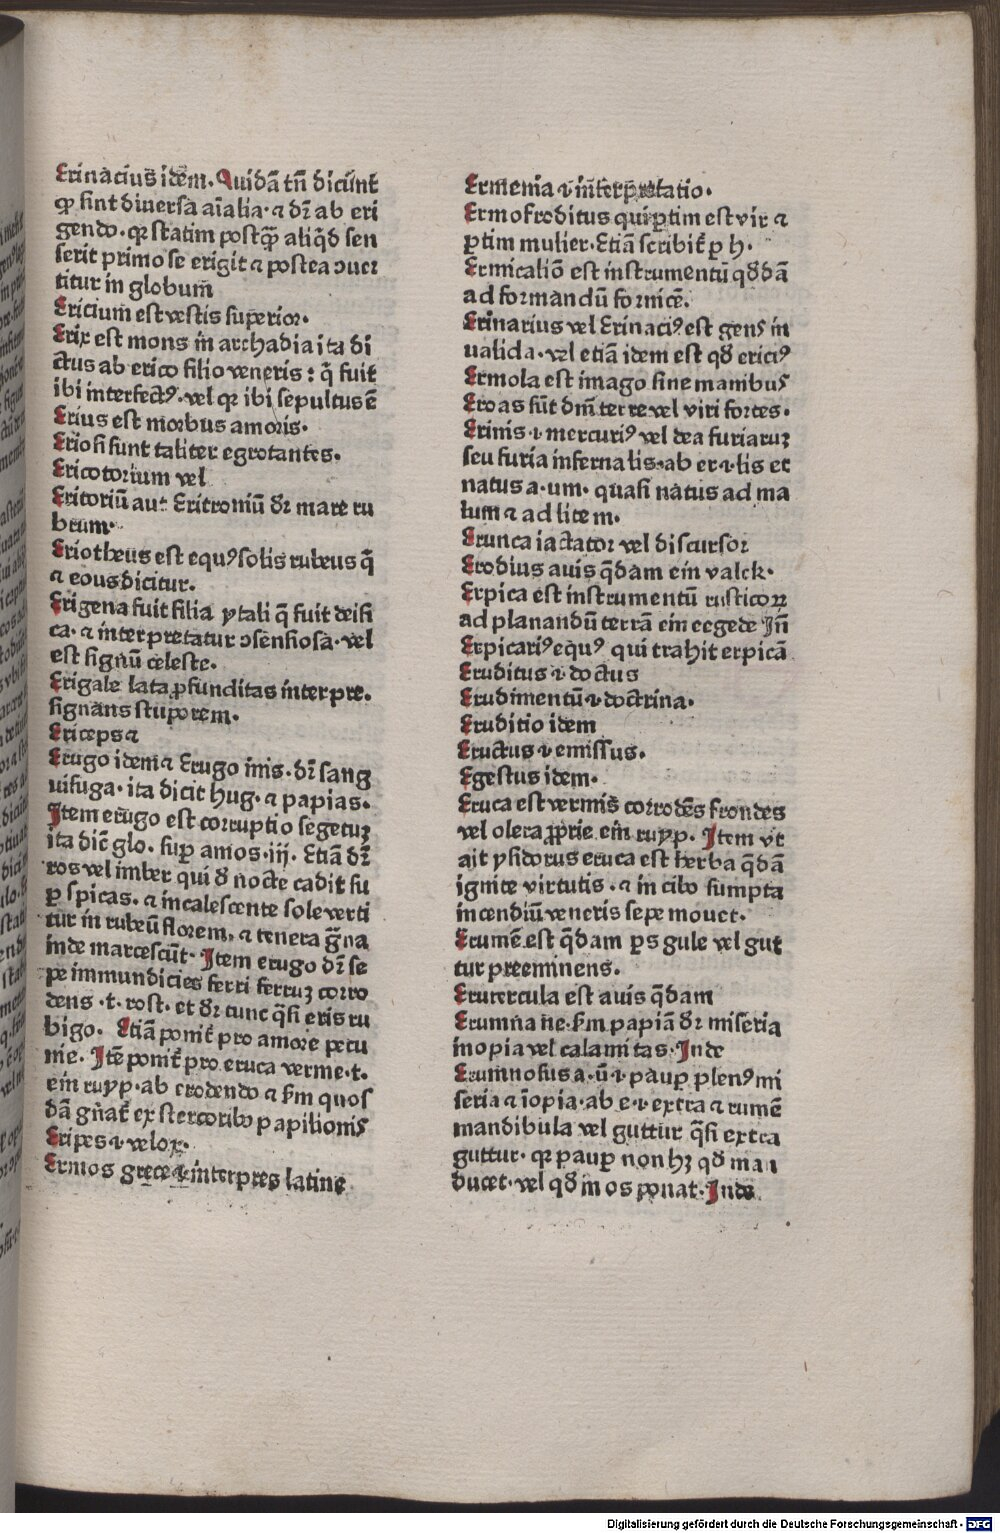 Erinacius idem. Quidā tn̄ dicūnt
ꝙ sint diuersa aīalia. ⁊ dr̄ ab eri
gendo. qꝛ statim postqꝫ̄ aliqd̄ sen
serit primo se erigit ⁊ postea ↄuer
titur in globum̄
Ericium est vestis superior.
Erix est mons in archadia ita di
ctus ab erico filio veneris: q̄ fuit
ibi interfectꝰ. vel qꝛ ibi sepultus ē
Erius est morbus amoris.
Eriosi sunt taliter egrotantes.
Ericotorium vel
Eritoriū aut Eritroniū dr̄ mare ru
brum.
Eriotheus est equꝰ solis rubeus q̄
⁊ eous dicitur.
Erigena fuit filia ytali q̄ fuit deifi
ca. ⁊ interpretatur ↄsensiosa. vel
est signū celeste.
Erigale lata ꝓfunditas interpre.
signans stuporem.
Ericeps ⁊
Erugo idem ⁊ Erugo inis. dr̄ sang
uisuga. ita dicit hug. ⁊ papias.
Item erugo est corruptio segetuꝫ
ita dic̄ glo. suꝑ amos .iij. Etiā dr̄
ros vel imber qui d̄ nocte cadit su
ꝑ spicas. ⁊ incalescente sole verti
tur in rubeū florem. ⁊ tenera gͣna
inde marcescūt. Item erugo dr̄ se
pe immundicies ferri ferruꝫ corro
dens .t. rost. et dr̄ tunc qͣsi eris ru
bigo. Etiā ponit̄ pro amore pecu
nie. Itē ponit̄ pro eruca verme .t.
ein rupp. ab erodendo ⁊ ẜm quos
dā gn̄at̄ ex stercoribo papilionis
Eripes .i. velox.
Ermos grece .i. interpres latine
Ermenia .i. interpretatio.
Ermofroditus qui ꝑtim est vir ⁊
ꝑtim mulier. Etiā scribit̄ ꝑ h.
Ermicaliō est instrumentū qd̄dā
ad formandū fornicē.
Erinarius vel Erinaciꝰ est genꝰ in
ualida. vel etiā idem est qd̄ ericiꝰ
Ermola est imago sine manibus
Eroas sūt dn̄i terre vel viri fortes.
Erinis .i. mercuriꝰ vel dea furiaruꝫ
seu furia infernalis. ab er .i. lis et
natus a. um. quasi natus ad ma
lum ⁊ ad litem.
Erunca iactator vel discursor
Erodius auis q̄dam ein valck.
Erpica est instrumentū rusticoꝝ
ad planandū terrā ein eegede In̄
Erpicariꝰ equꝰ qui trahit erpicā
Eruditus .i. doctus
Erudimentū .i. doctrina.
Eruditio idem
Eructus .i. emissus.
Egestus idem.
Eruca est vermis corrodēs frondes
vel olera ꝓprie ein rupp. Item vt
ait ysidorus eruca est herba q̄dā
ignite virtutis. ⁊ in cibo sumpta
incendiū veneris sepe mouet.
Erumē est q̄dam ꝑs gule vel gut
tur preeminens.
Erutercula est auis q̄dam
Erumna ne. ẜm papiā dr̄ miseria
inopia vel calamitas. Inde
Erumnosus a. ū .i. pauꝑ plenꝰ mi
seria ⁊ īopia. ab e .i. extra ⁊ rumē
mandibula vel guttur qͣsi extra
guttur. qꝛ pauꝑ non hꝫ qd̄ man
ducet. vel qd̄ in os ponat. Inde
Digitalisierung gefördert durch die Deutsche Forschungsgemeinschaft - DFG